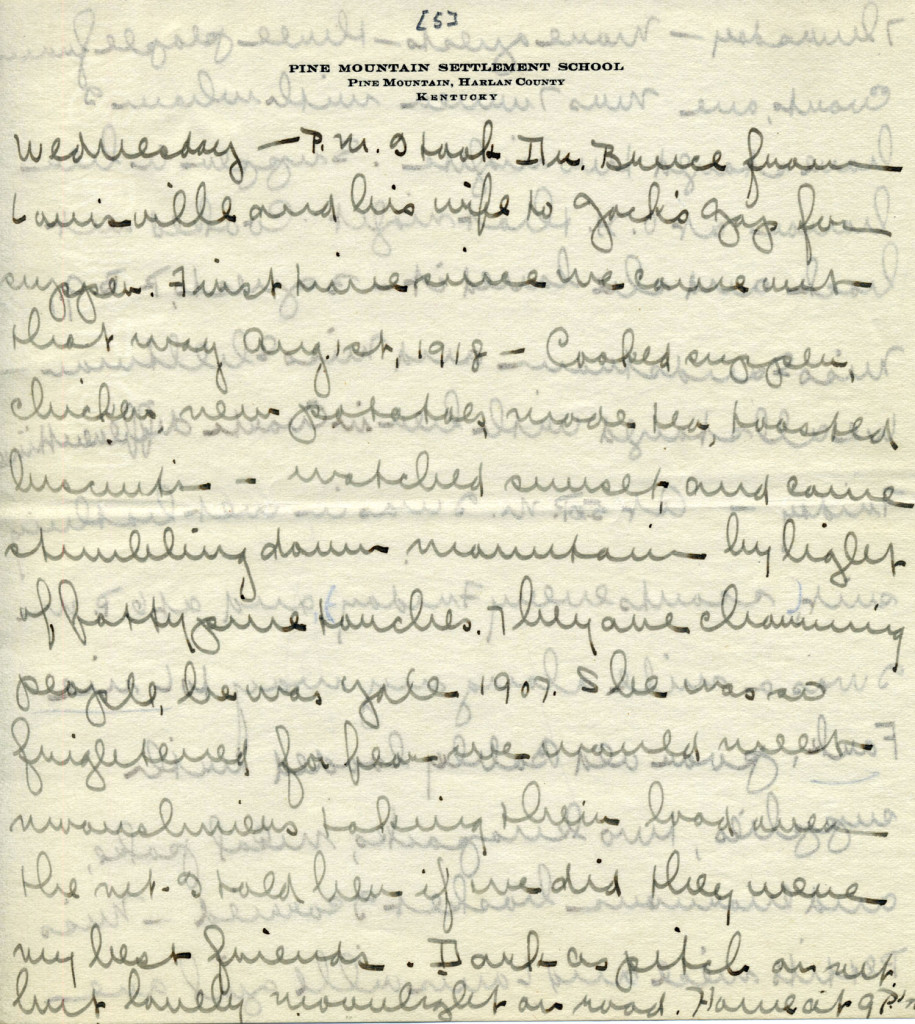 [5]
PINE MOUNTAIN SETTLEMENT SCHOOL
PINE MOUNTAIN, HARLAN COUNTY
KENTUCKY
Wednesday — P.M. I took Dr. Bruce from
Louisville and his wife to Jack's Gap for
supper. First time since we came out
that way Aug. 1st, 1918 — Cooked supper,
chicken, new potatoes, made tea, toasted
biscuits — watched sunset, and came
stumbling down mountain by light
of fatty pine torches. They are charming
people, he was Yale 1907. She was so
frightened for fear we would meet
moonshiners taking their load over
the mt. I told her if we did they were
my best friends. Dark as pitch on mt.
but lovely moonlight on road. Home at 9 P.M.